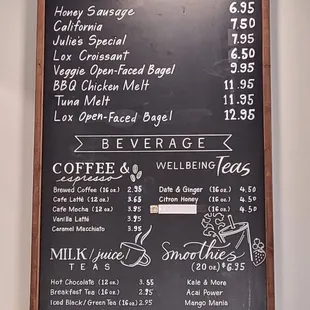 Honey Sausage 6.95
California 7.50
Julie's Special 7.95
Lox Croissant 6.50
Veggie Open-Faced Bagel 9.95
BBQ Chicken Melt 11.95
Tuna Melt 11.95
Lox Open-Faced Bagel 12.95
BEVERAGE
COFFEE & espresso
Brewed Coffee (16 oz.) 2.95
Cafe Latté (12 oz) 3.65
Cafe Mocha (12 oz) 3.95
Vanilla Latté 3.95
Caramel Macchiato 3.95
WELLBEING Teas
Date & Ginger (16 oz) 4.50
Citron Honey (16 oz) 4.50
(16 oz) 4.50
MILK/juice
TEAS
Hot Chocolate (12 oz) 3.55
Breakfast Tea (16 oz) 2.75
Iced Black/Green Tea (16 oz) 2.95
Smoothies
(20 oz) $6.95
Kale & More
Acai Power
Mango Mania